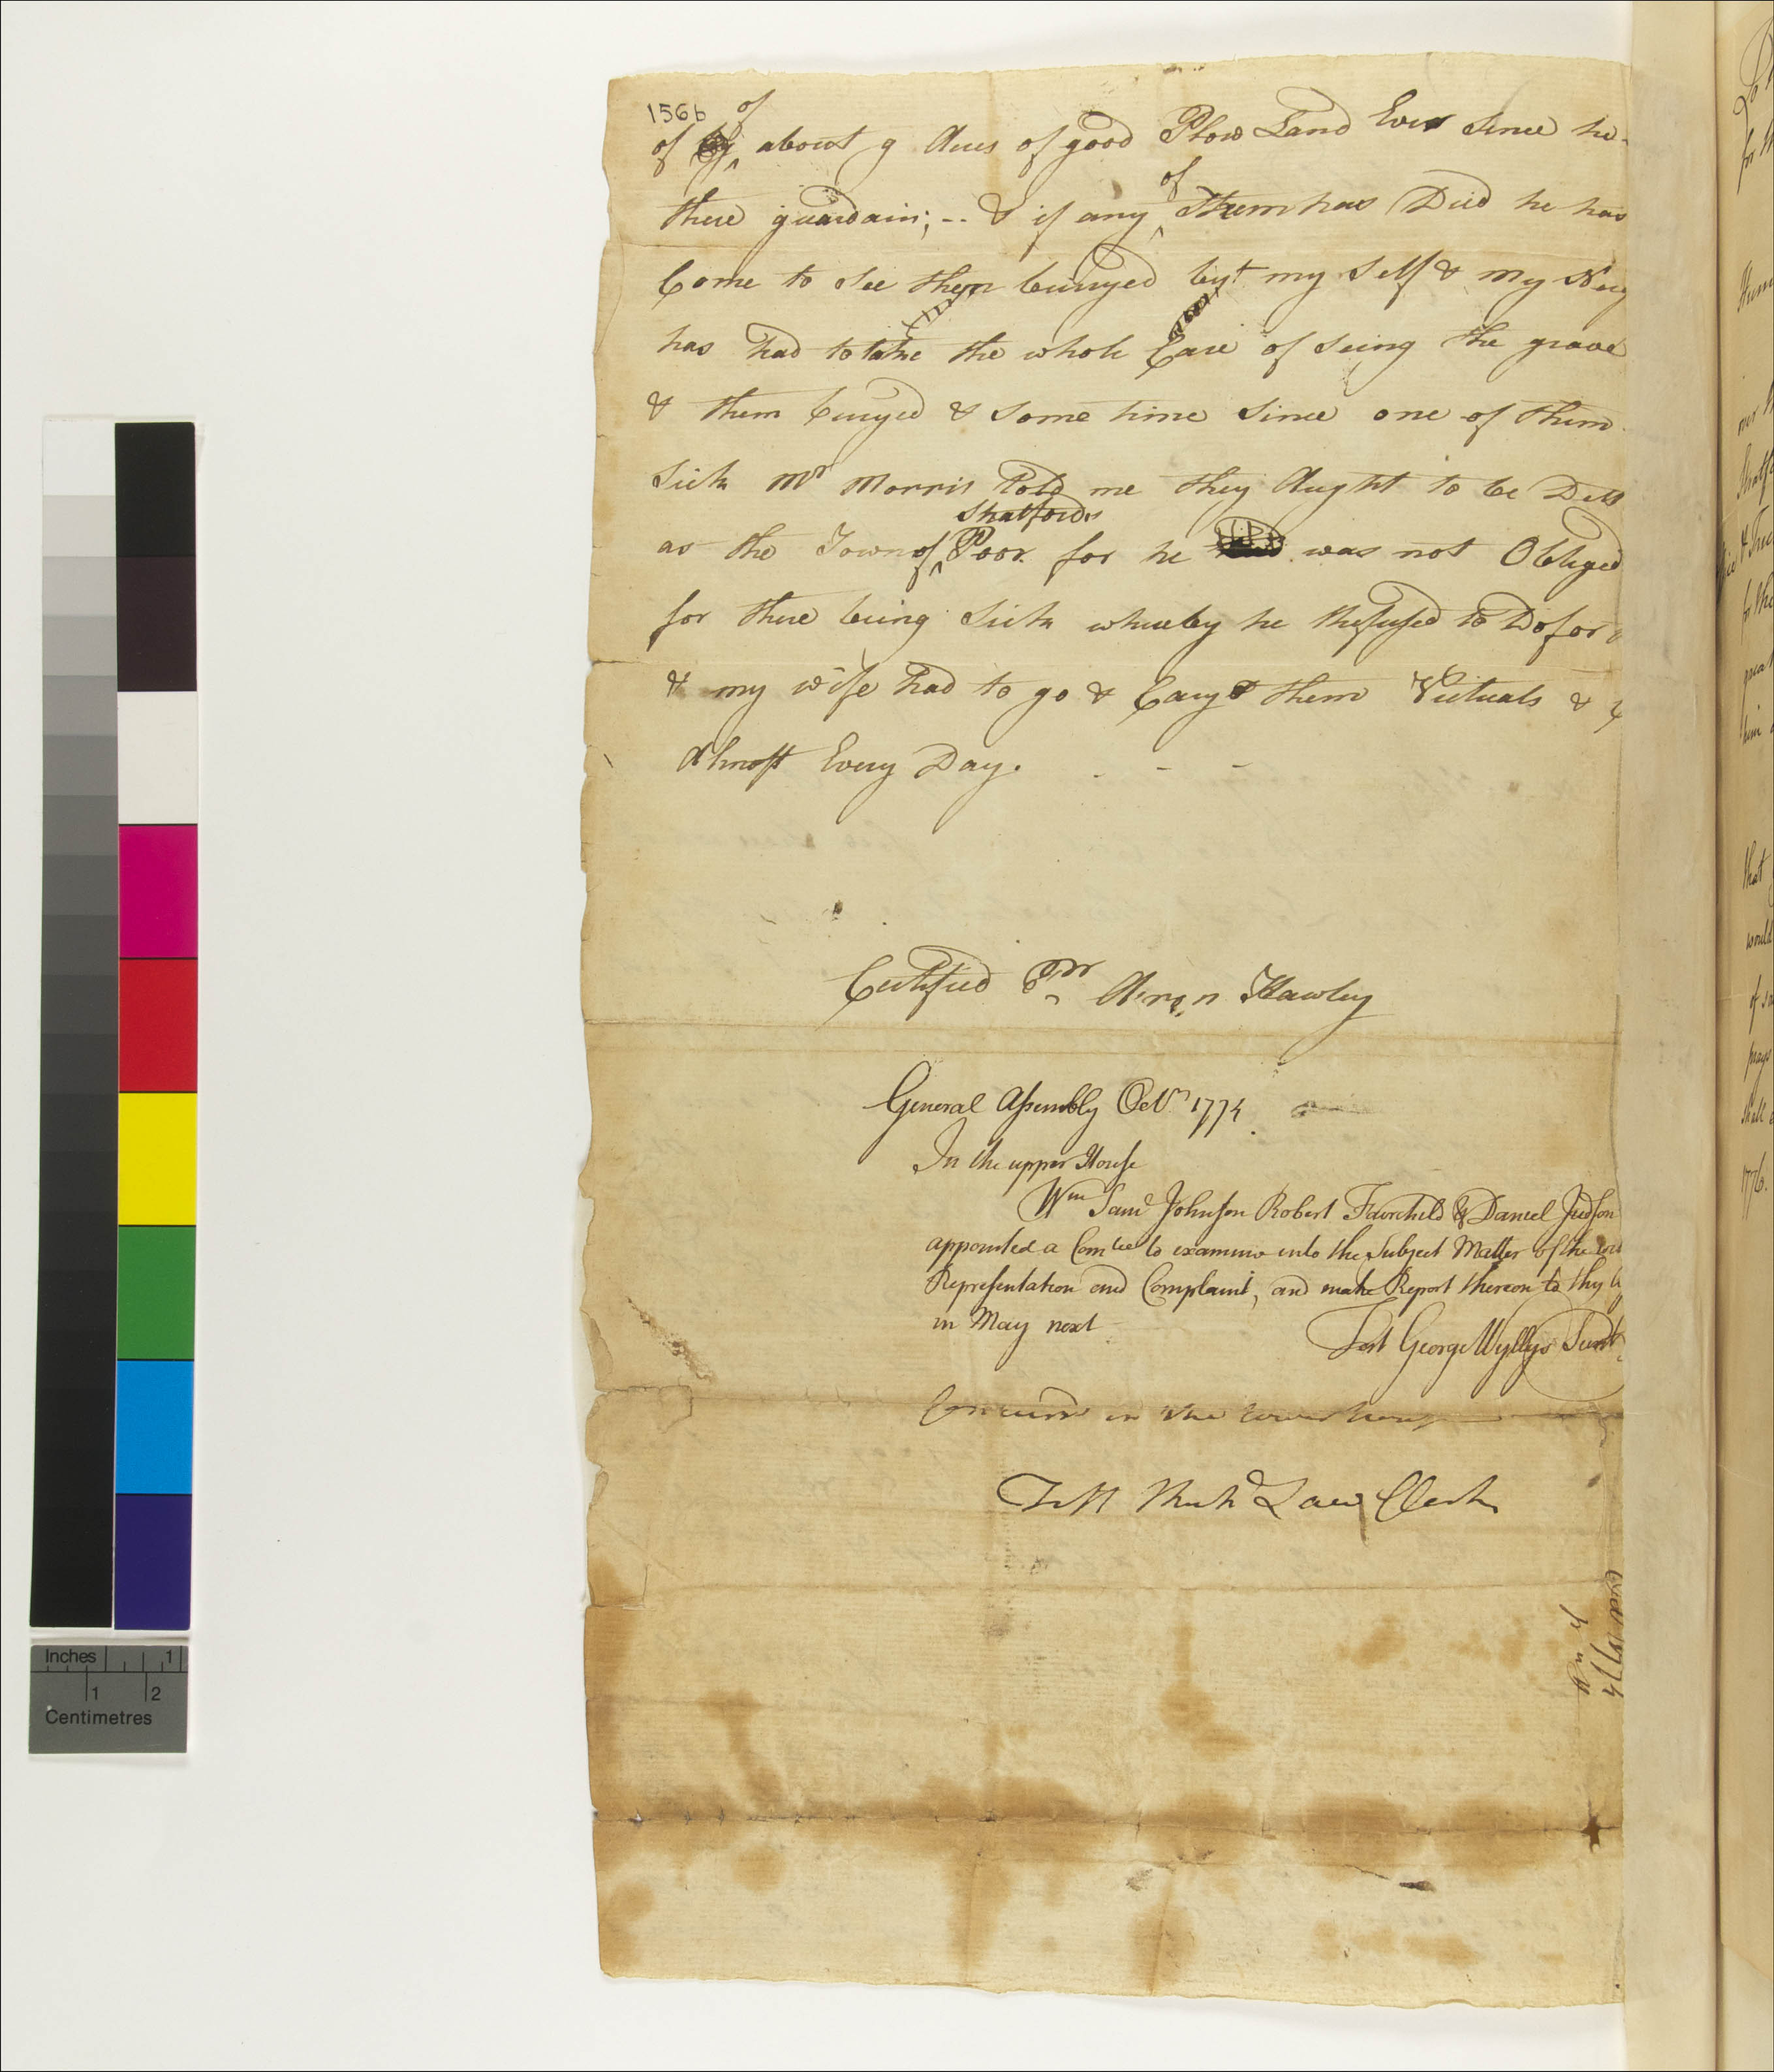 156b
of of about 9 Acres of good Plow Land Ever Since he
there guardain; -- & if any of Them has Died he has
Come to See them burryed byt my Self & my Neig
has had to take the whole Care of Seing the grave
& them burryed & Some time Since one of them
Sick Mr Morris Told me they Aught to be Delt
as the Town of Stratfords Poor for he was not Obliged
for there being Sick whereby he Refused to Do for
& my wife had to go & Cary them Victuals &
Almost Every Day. - - -
Certified Pr Aron Hawley
General Assembly Octr 1774
In the upper House
Wm Saml Johnson Robert Fairchild & Daniel Judson
appointed a Comtee to examine into the Subject Matter of the
Representation and Complaint, and make Report thereon to
in May next
Test George Wyllys Secret
Concurrd in the lower house
Test Richd Law Clerk
1774